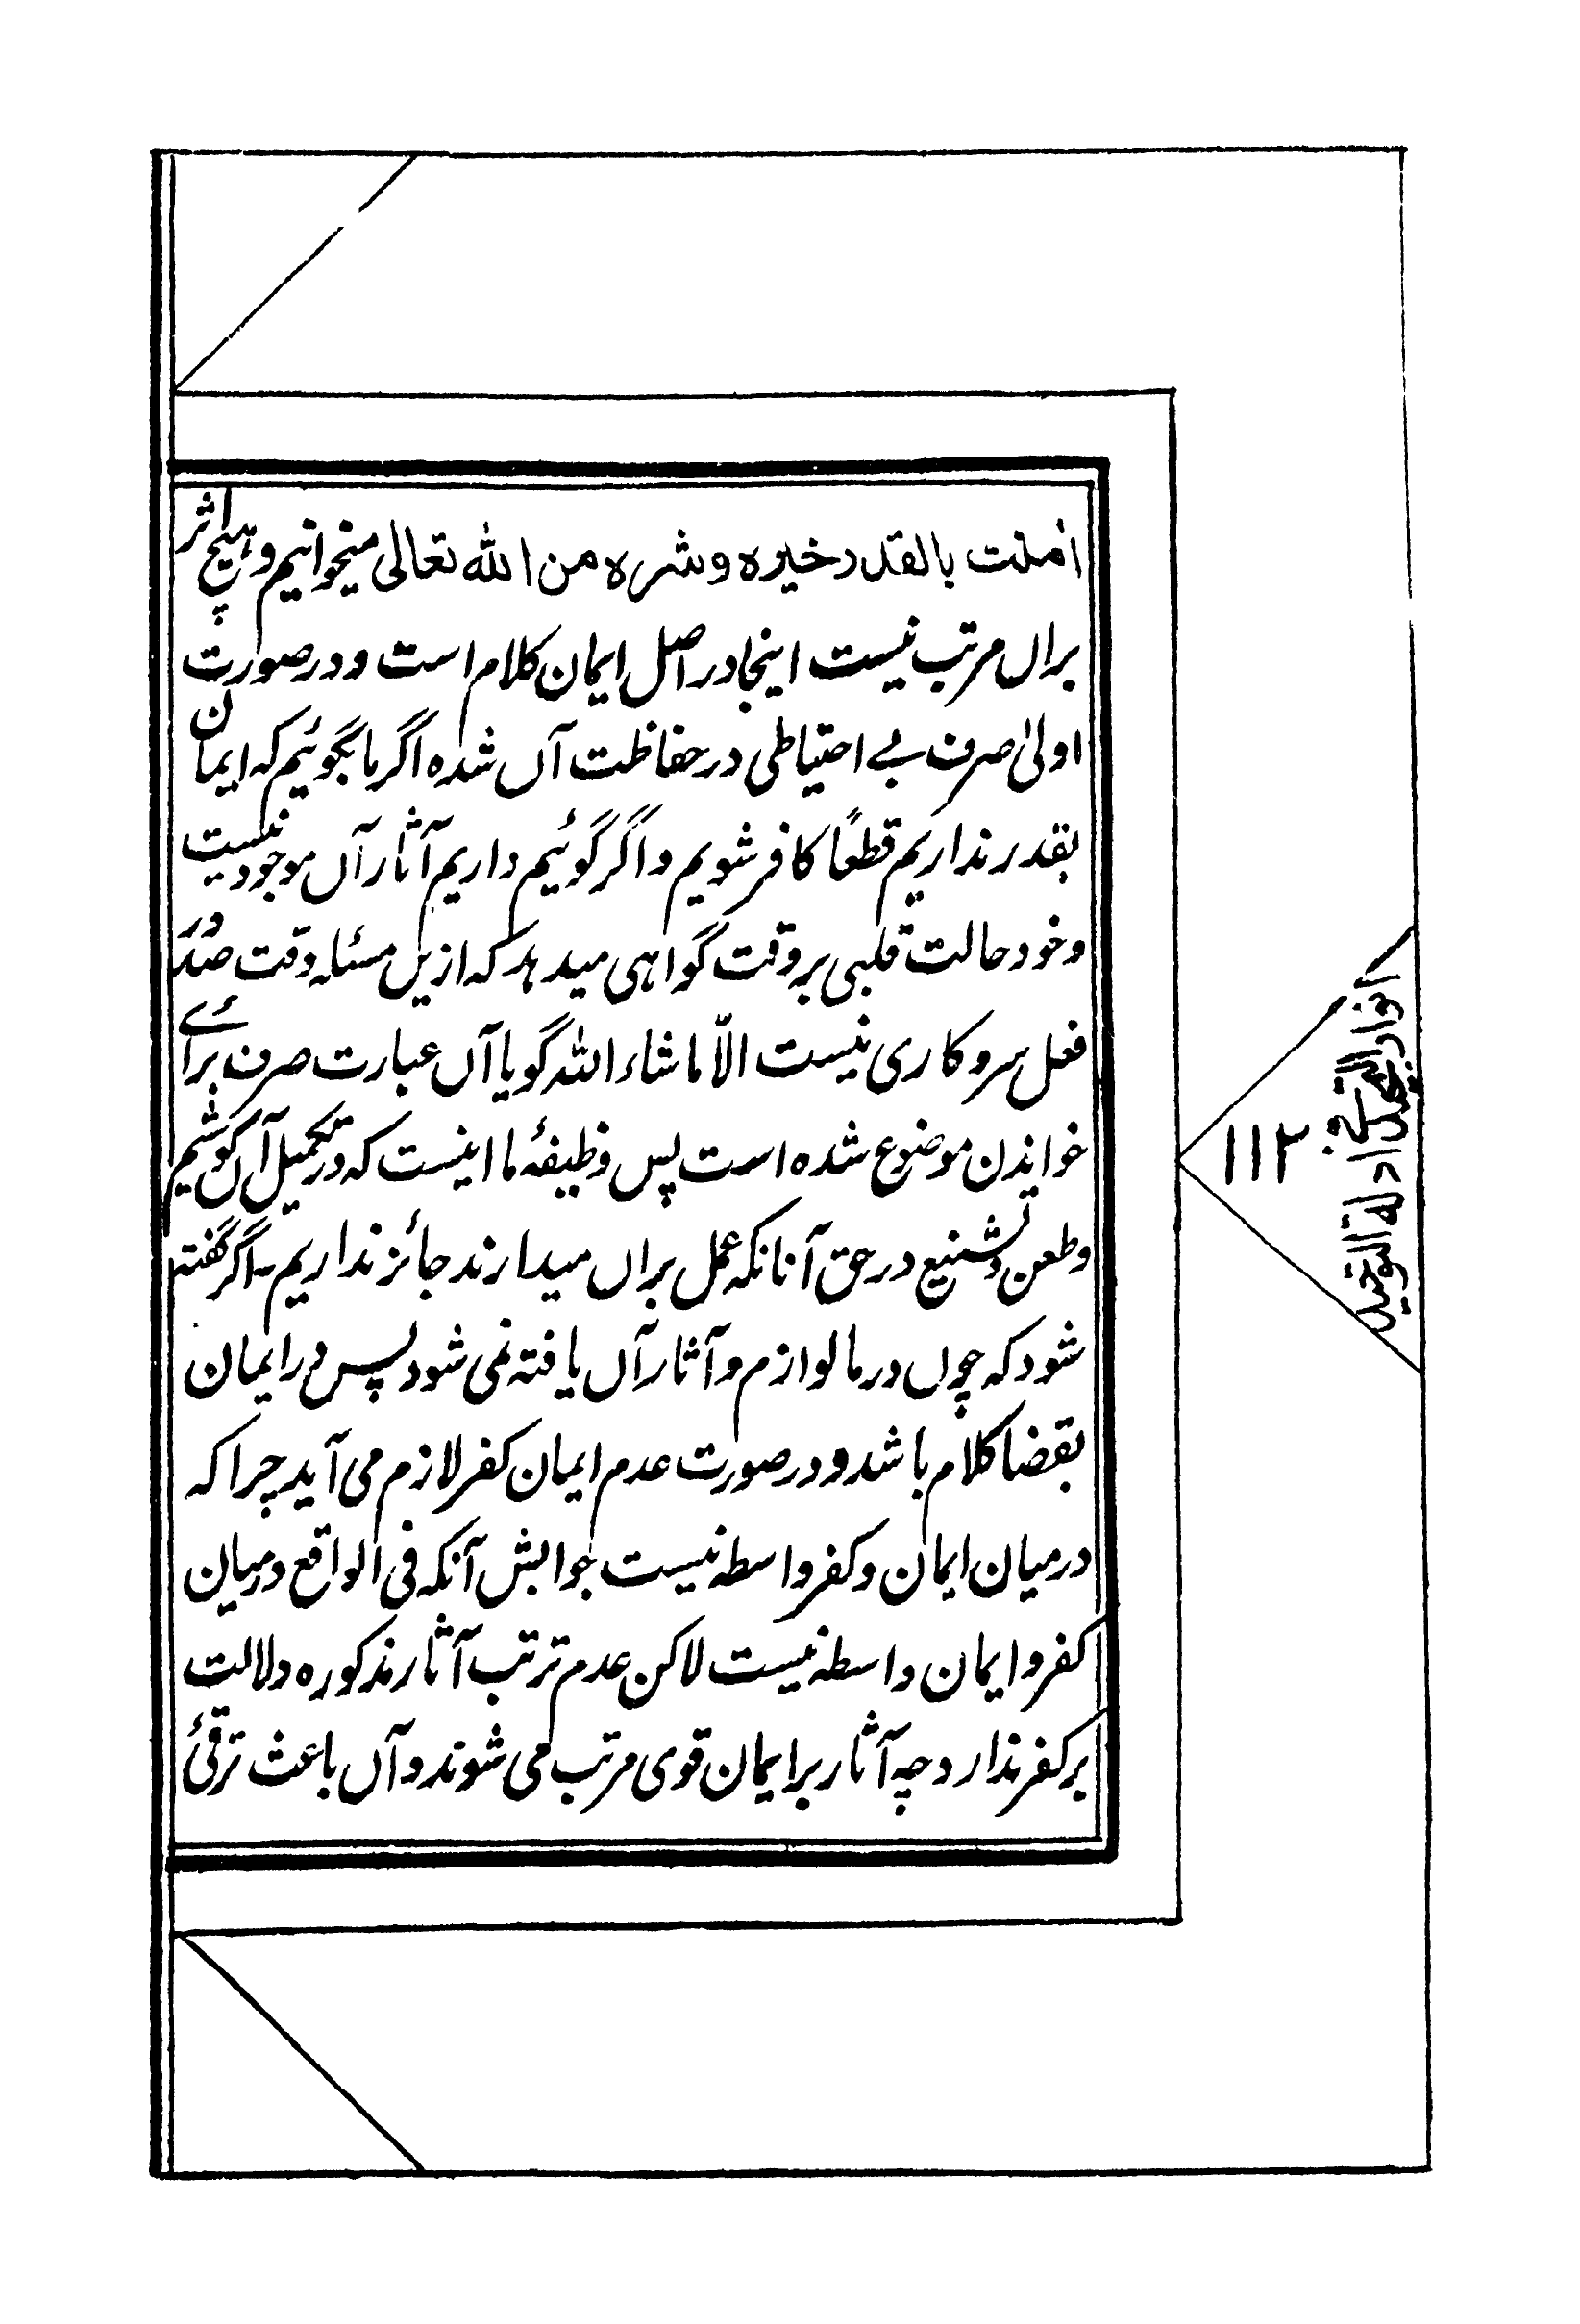 اٰمنت بالقدر خیره وشره من الله تعالی میخوانیم و هیچ اثر
براں مرتب نیست اینجا در اصل ایمان کلام است و در صورت
اولیٰ صرف بے احتیاطی در حفاظت آں شده اگر ما بگوئیم که ایمان
بقدر نداریم قطعًا کافر شویم و اگر گوئیم داریم آثار آں موجود نیست
و خود حالت قلبی بر وقت گواہی میدہد که ازیں مسئله وقت صدور
فعل سروکاری نیست الّا ماشاء الله گویا آں عبارت صرف برائے
خواندن موضوع شده است پس وظیفۂ ما اینست که در تکمیل آں کوشیم
و طعن و تشنیع در حق آنانکه عمل براں میدارند جائز نداریم ـ اگر گفته
شود که چوں در ما لوازم و آثار آں یافته نمی شود پس در ایمان
بقضا کلام باشد و در صورت عدم ایمان کفر لازم می آید چرا که
درمیان ایمان و کفر واسطه نیست جوابش آنکه فی الواقع درمیان
کفر و ایمان واسطه نیست لاکن عدم ترتب آثار مذکوره دلالت
بر کفر ندارد چه آثار بر ایمان قوی مرتب می شوند و آں باعث ترقیٔ
۱۱۲
ادلة التوحید